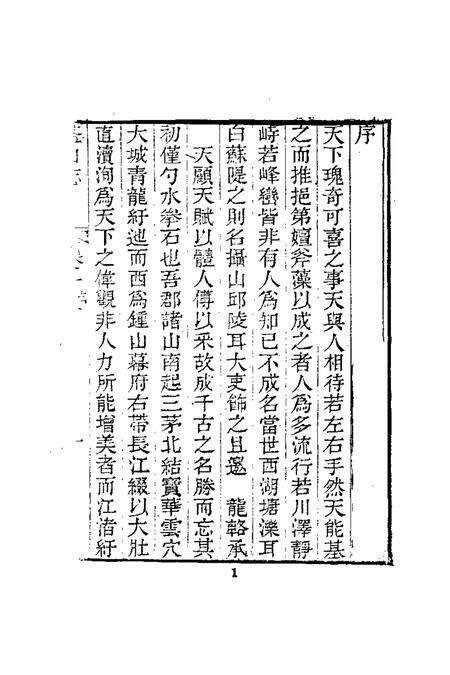 序
天下瑰奇可喜之事天與人相待若左右手然天能基
之而推挹第嬗斧藻以成之者人為多流行若川澤靜
峙若峰巒皆非有人為知已不成名當世西湖塘濼耳
白蘇隄之則名攝山邱陵耳大吏飾之且邀　龍輅承
天顧天賦以體人傅以采故成千古之名勝而忘其
初僅勺水拳石也吾郡諸山南起三茅北結寶華雲穴
大城青龍紆迆而西為鍾山幕府右帶長江綴以大壯
直瀆洵為天下之偉觀非人力所能增美者而江渚紆
1